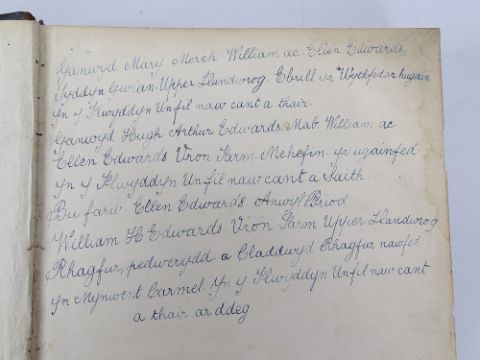 Ganwyd Mary Merch William ac Ellen Edwards.
Tyddyn Gwian Upper Llandwrog. Ebrill yr Wythfedar hugain
yn y flwyddyn Unfil naw cant a thair.
Ganwyd Hugh Arthur Edwards. Mab. William ac
Ellen Edwards Vron Farm. Mehefin. yr ugainfed
yn y flwyddyn Unfil naw cant a Saith.
Bu farw Ellen Edwards. Anwyl Briod
William H Edwards. Vron Farm Upper Llandwrog
Rhagfur, pedwerydd. a Claddwyd Rhagfur nawfed
yn Mynwent Carmel. Yn y flwyddyn Unfil naw cant
a thair ar ddeg